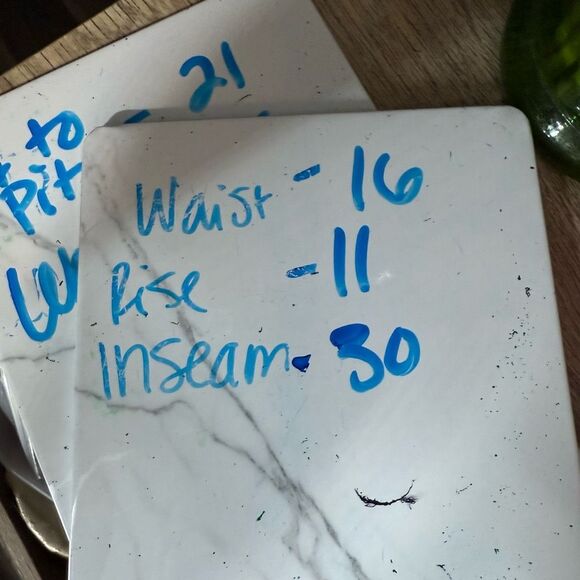 21
to
Pit
Waist - 16
Rise - 11
Inseam - 30